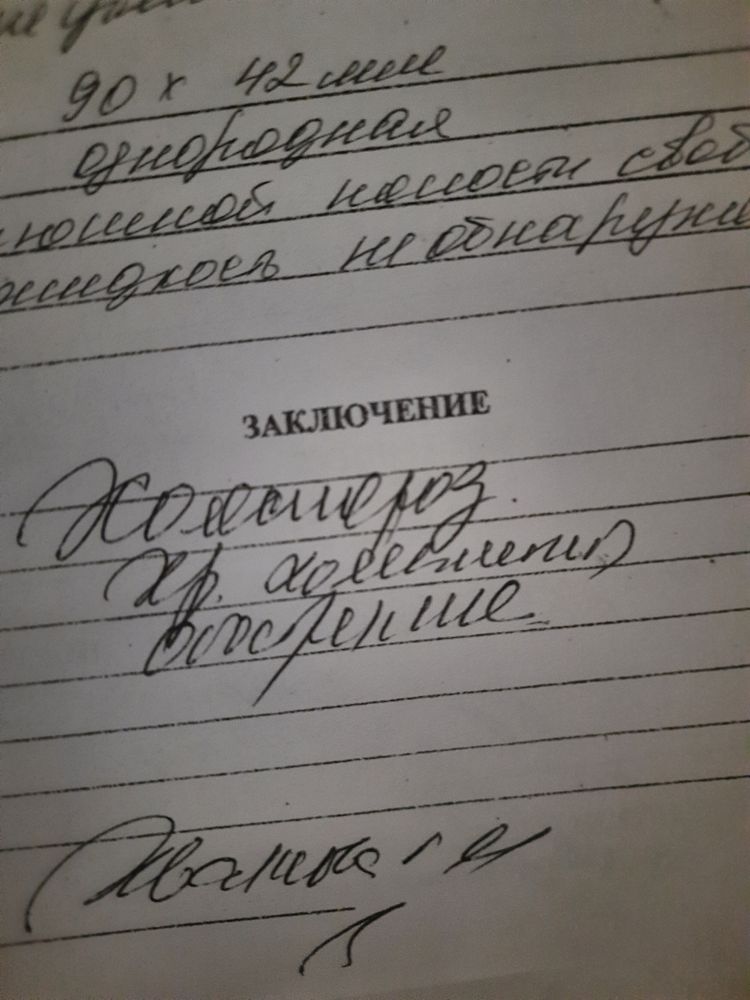 90 х 42 мм
однородная
полости своб
жидкость не обнаружи
ЗАКЛЮЧЕНИЕ
Холестероз.
Хр. холецистит
обострение